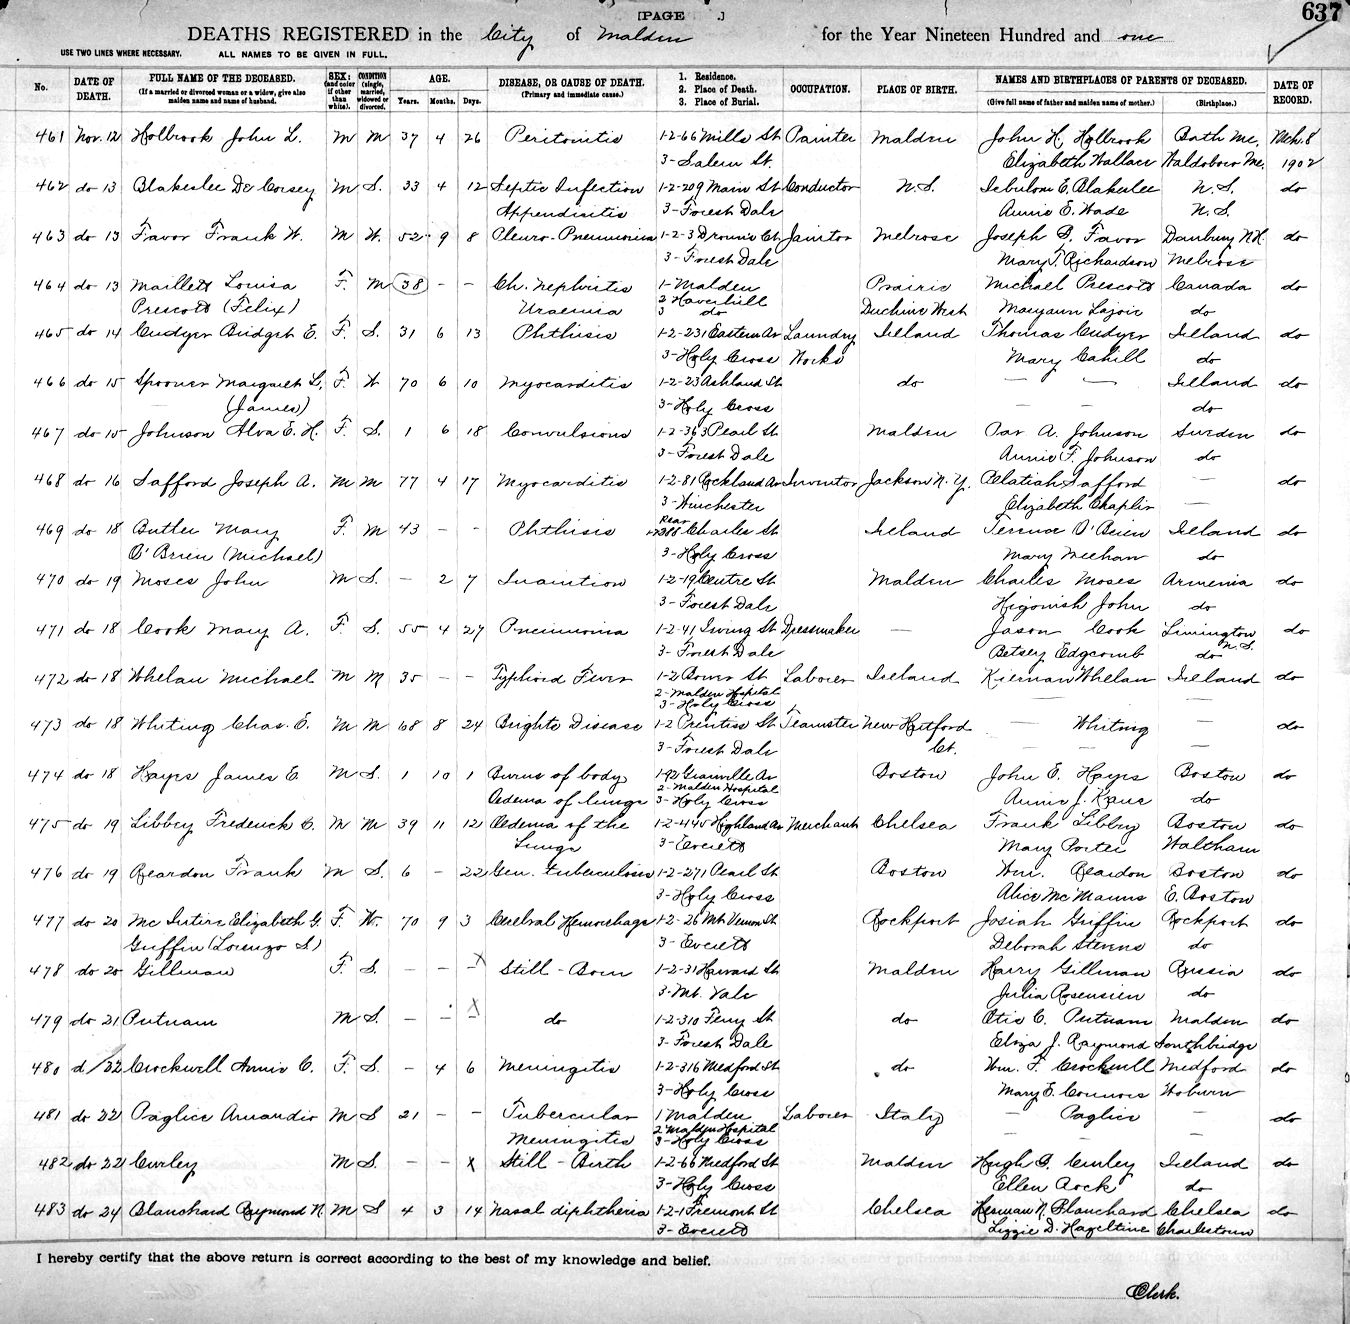 [PAGE .]
637
DEATHS REGISTERED in the City of Malden for the Year Nineteen Hundred and one
USE TWO LINES WHERE NECESSARY. ALL NAMES TO BE GIVEN IN FULL.
No. DATE OF DEATH. FULL NAME OF THE DECEASED. (If a married or divorced woman or a widow, give also maiden name and name of husband.) SEX; (and color if other than white). CONDITION (single, married, widowed or divorced). AGE. Years. Months. Days. DISEASE, OR CAUSE OF DEATH. (Primary and immediate cause.) 1. Residence. 2. Place of Death. 3. Place of Burial. OCCUPATION. PLACE OF BIRTH. NAMES AND BIRTHPLACES OF PARENTS OF DECEASED. (Give full name of father and maiden name of mother.) (Birthplace.) DATE OF RECORD.
461 Nov. 12 Holbrook John L. M M 37 4 26 Peritonitis 1-2-66 Mills St Painter Malden John H. Holbrook Bath Me. Mch. 8
3- Salem St. Elizabeth Wallace Waldoboro Me. 1902
462 do 13 Blakeslee De Corsey M S. 33 4 12 Septic Infection 1-2-209 Main St Conductor N.S. E. Blakeslee N.S. do
Appendisitis 3- Forest Dale Annie E. Wade N.S.
463 do 13 Favor Frank W. M W. 52 9 8 Pleuro-Pneumonia 1-2-3 Ct Janitor Melrose Joseph B. Favor Danbury N.H. do
3- Forest Dale Mary T. Richardson Melrose
464 do 13 Maillett Louisa F. M 38 - - Ch. Nephritis 1- Malden Prairie Michael Prescott Canada do
Prescott (Felix) Uraemia 2 Haverhill 3 do Duchine West Maryann Lajoie do
465 do 14 Cudyer Bridget E. F. S. 31 6 13 Phthisis 1-2-231 Eastern Av Laundry Ireland Thomas Cudyer Ireland do
3- Holy Cross Works Mary Cahill do
466 do 15 Spooner Margaret L. F. W 70 6 10 Myocarditis 1-2-23 Ashland St do — — Ireland do
— (James) 3- Holy Cross — — do
467 do 15 Johnson Alva E. H. F. S. 1 6 18 Convulsions 1-2-363 Pearl St. Malden A. Johnson Sweden do
3- Forest Dale Annie F. Johnson do
468 do 16 Safford Joseph A. M M 77 4 17 Myocarditis 1-2-81 Rockland Av Inventor Jackson N.Y. Pelatiah Safford — do
3- Winchester Elizabeth Chaplin —
469 do 18 Butler Mary F. M 43 - - Phthisis Rear Charles St Ireland Terence O'Brien Ireland do
O'Brien (Michael) 3- Holy Cross Mary Meehan do
470 do 19 Moses John M S. - 2 7 Inanition 1-2-19 Centre St Malden Charles Moses Armenia do
3- Forest Dale Higonish John do
471 do 18 Cook Mary A. F. S. 55 4 27 Pneumonia 1-2-41 Irving St Dressmaker — Jason Cook Limington do
3- Forest Dale Betsey Edgcomb do N.S.
472 do 18 Whelan Michael M M 35 - - Typhoid Fever 1-2 Bower St Laborer Ireland Kiernan Whelan Ireland do
2- Malden Hospital 3- Holy Cross — —
473 do 18 Whiting Chas. E. M M 68 8 24 Brights Disease 1-2 Prentiss St. Teamster New Hartford — Whiting — do
3- Forest Dale Ct. — —
474 do 18 Hayes James E. M S. 1 10 1 Burns of body 1-92 Grainville Av Boston John E. Hayes Boston do
Oedema of lungs 2- Malden Hospital 3- Holy Cross Annie J. Kane do
475 do 19 Libbey Frederick C. M M 39 11 12 Oedema of the 1-2-445 Highland Av Merchant Chelsea Frank Libbey Boston do
Lungs 3- Everett Mary Porter Waltham
476 do 19 Reardon Frank M S. 6 - 22 Gen. tuberculosis 1-2-271 Pearl St Boston Wm. Reardon Boston do
3- Holy Cross Alice McManus E. Boston
477 do 20 Mc Intire Elizabeth G. F. W. 70 9 3 Cerebral Hemorrhage 1-2-26 Mt Vernon St Rockport Josiah Griffin Rockport do
Griffin (Lorenzo S) 3- Everett Deborah Stevens do
478 do 20 Gillman F. S. - - -x Still-Born 1-2-31 Harvard St Malden Harry Gillman Russia do
3- Mt. Vale Julia Rosensien do
479 do 21 Putnam M S. - - -x do 1-2-310 Ferry St do Otis C. Putnam Malden do
3- Forest Dale Eliza J. Raymond Southbridge
480 d /22 Crockwell Annie C. F. S. - 4 6 Meningitis 1-2-316 Medford St do Wm. F. Crockwell Medford do
3- Holy Cross Mary E. Connors Woburn
481 do 22 Paglice Amandio M S 21 - - Tubercular 1 Malden Laborer Italy — Paglice — do
Meningitis 2 Malden Hospital 3- Holy Cross — —
482 do 22 Curley M S. - - x Still-Birth 1-2-66 Medford St Malden Hugh B. Curley Ireland do
3- Holy Cross Ellen Rock do
483 do 24 Blanchard Raymond N. M S 4 3 14 Nasal diphtheria 1-2-1 Fremont St Chelsea Herman N. Blanchard Chelsea do
3- Everett Lizzie D. Hazeltine Charlestown
I hereby certify that the above return is correct according to the best of my knowledge and belief.
Clerk.